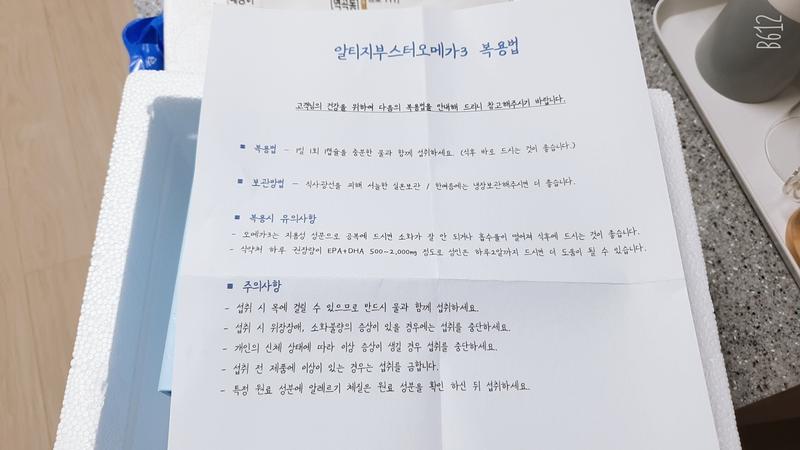 알티지부스터오메가3 복용법
고객님의 건강을 위하여 다음의 복용법을 안내해 드리니 참고해주시기 바랍니다.
■ 복용법 - 1일 1회 1캡슐을 충분한 물과 함께 섭취하세요. (식후 바로 드시는 것이 좋습니다.)
■ 보관방법 - 직사광선을 피해 서늘한 실온보관 / 한여름에는 냉장보관해주시면 더 좋습니다.
■ 복용시 유의사항
- 오메가3는 지용성 성분으로 공복에 드시면 소화가 잘 안 되거나 흡수율이 떨어져 식후에 드시는 것이 좋습니다.
- 식약처 하루 권장량이 EPA+DHA 500-2,000mg 정도로 성인은 하루2알까지 드시면 더 도움이 될 수 있습니다.
■ 주의사항
- 섭취 시 목에 걸릴 수 있으므로 반드시 물과 함께 섭취하세요.
- 섭취 시 위장장애, 소화불량의 증상이 있을 경우에는 섭취를 중단하세요.
- 개인의 신체 상태에 따라 이상 증상이 생길 경우 섭취를 중단하세요.
- 섭취 전 제품에 이상이 있는 경우는 섭취를 금합니다.
- 특정 원료 성분에 알레르기 체질은 원료 성분을 확인 하신 뒤 섭취하세요.
B612